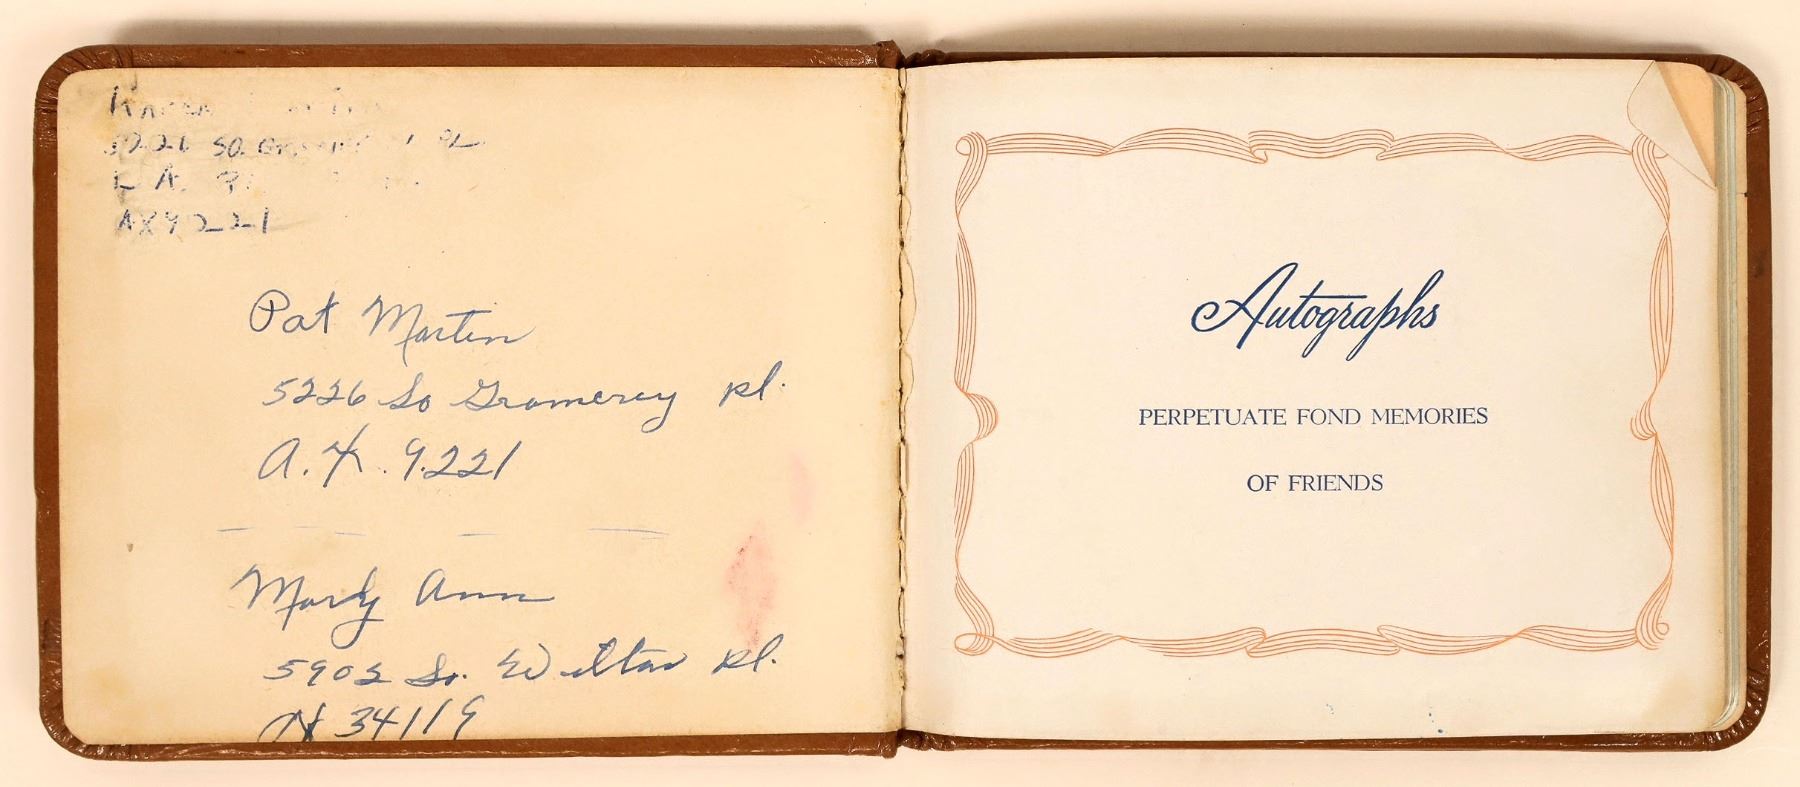 L A.
AX 9221
Pat Martin
5226 So Gramercy pl.
A.X. 9.221
Mardy Ann
5902 So. Wilton pl.
AX 34119
Autographs
PERPETUATE FOND MEMORIES
OF FRIENDS